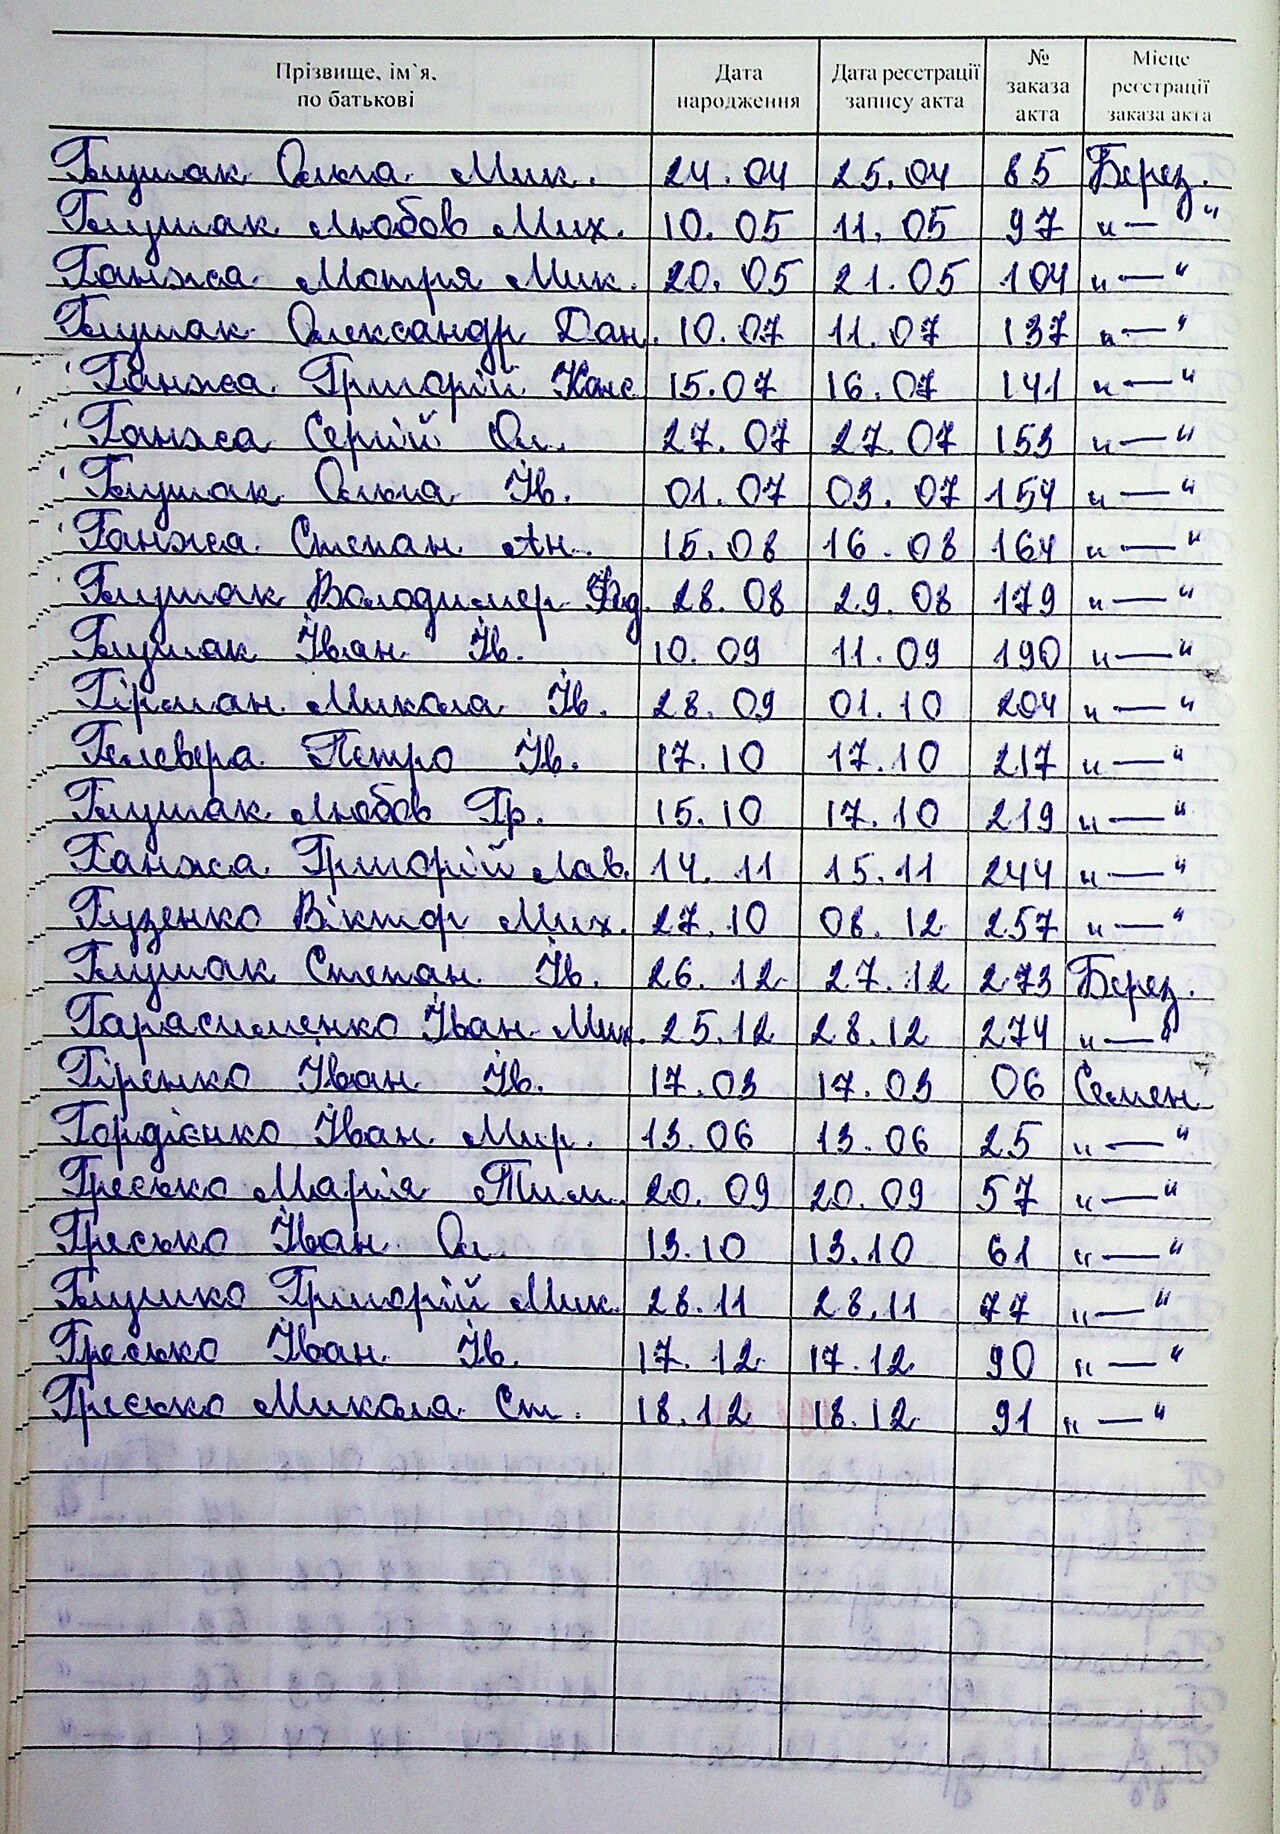 Прізвище, ім`я, по батькові Дата народження Дата реєстрації запису акта № заказа акта Місце реєстрації заказа акта
Глушак Ольга Мик. 24.04 25.04 85 Берез.
Глушак Любов Мих. 10.05 11.05 97 „—“
Ганжа Мотря Мик. 20.05 21.05 104 „—“
Глушак Олександр Дан. 10.07 11.07 137 „—“
Ганжа Григорій Конс 15.07 16.07 141 „—“
Ганжа Сергій Ол. 27.07 27.07 153 „—“
Глушак Ольга Ів. 01.07 03.07 154 „—“
Ганжа Степан Ан. 15.08 16.08 164 „—“
Глушак Володимер Фед. 28.08 29.08 179 „—“
Глушак Іван Ів. 10.09 11.09 190 „—“
Гірман Микола Ів. 28.09 01.10 204 „—“
Гелевера Петро Ів. 17.10 17.10 217 „—“
Глушак Любов Гр. 15.10 17.10 219 „—“
Ганжа Григорій Лав. 14.11 15.11 244 „—“
Гузенко Віктор Мих. 27.10 08.12 257 „—“
Глушак Степан Ів. 26.12 27.12 273 Берез.
Гарасименко Іван Мих. 25.12 28.12 274 „—“
Гіренко Іван Ів. 17.03 17.03 06 Семен
Гордієнко Іван Мир. 13.06 13.06 25 „—“
Гресько Марія Тим. 20.09 20.09 57 „—“
Гресько Іван Ол. 13.10 13.10 61 „—“
Глушко Григорій Мик. 28.11 28.11 77 „—“
Гресько Іван Ів. 17.12 17.12 90 „—“
Гресько Микола Ст. 18.12 18.12 91 „—“